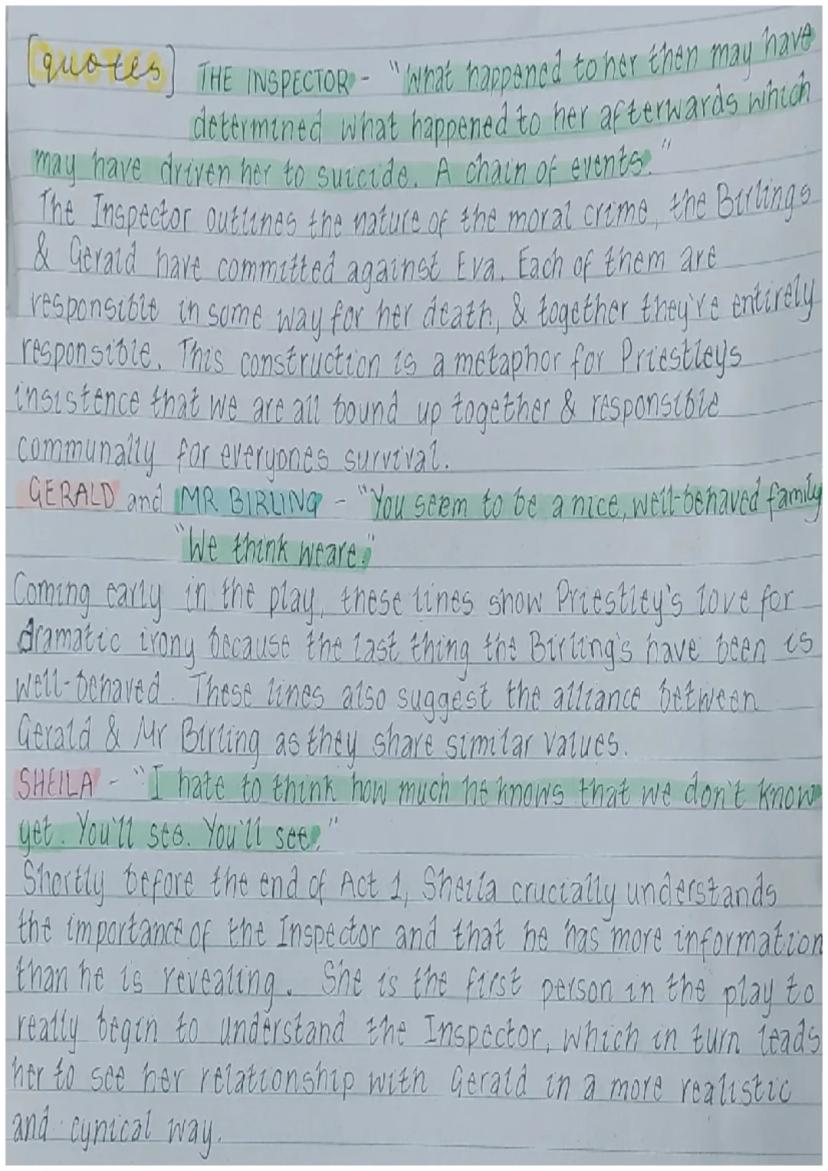 [quotes] THE INSPECTOR - "What happened to her then may have
determined what happened to her afterwards which
may have driven her to suicide. A chain of events."
The Inspector outlines the nature of the moral crime, the Birlings
& Gerald have committed against Eva. Each of them are
responsible in some way for her death, & together they're entirely
responsible. This construction is a metaphor for Priestley's
insistence that we are all bound up together & responsible
communally for everyones survival.
GERALD and MR BIRLING - "You seem to be a nice, well-behaved family
"We think we are."
Coming early in the play, these lines show Priestley's love for
dramatic irony because the last thing the Birling's have been is
well-behaved. These lines also suggest the alliance between
Gerald & Mr Birling as they share similar values.
SHEILA - "I hate to think how much he knows that we don't know
yet. You'll see. You'll see."
Shortly before the end of Act 1, Sheila crucially understands
the importance of the Inspector and that he has more information
than he is revealing. She is the first person in the play to
really begin to understand the Inspector, which in turn leads
her to see her relationship with Gerald in a more realistic
and cynical way.